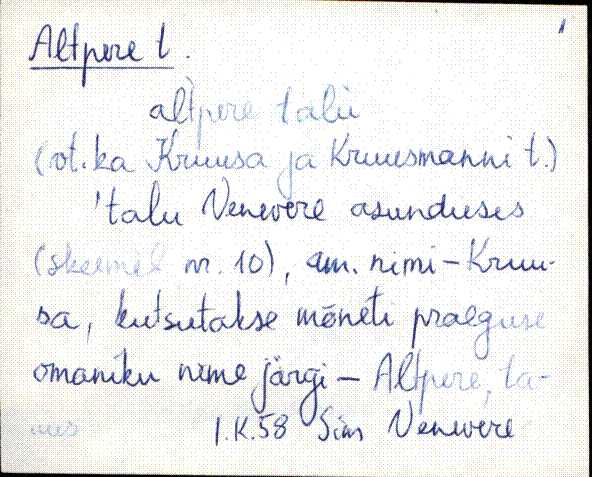 Altpere t.
àltpere talu
(vt. ka Kruusa ja Kruusmanni t.)
'talu Venevere asunduses
(skeemil nr. 10), am. nimi - Kruu-
sa, kutsutakse mõneti praeguse
omaniku nime järgi - Altpere, ta-
I.K.58 Sim Venevere